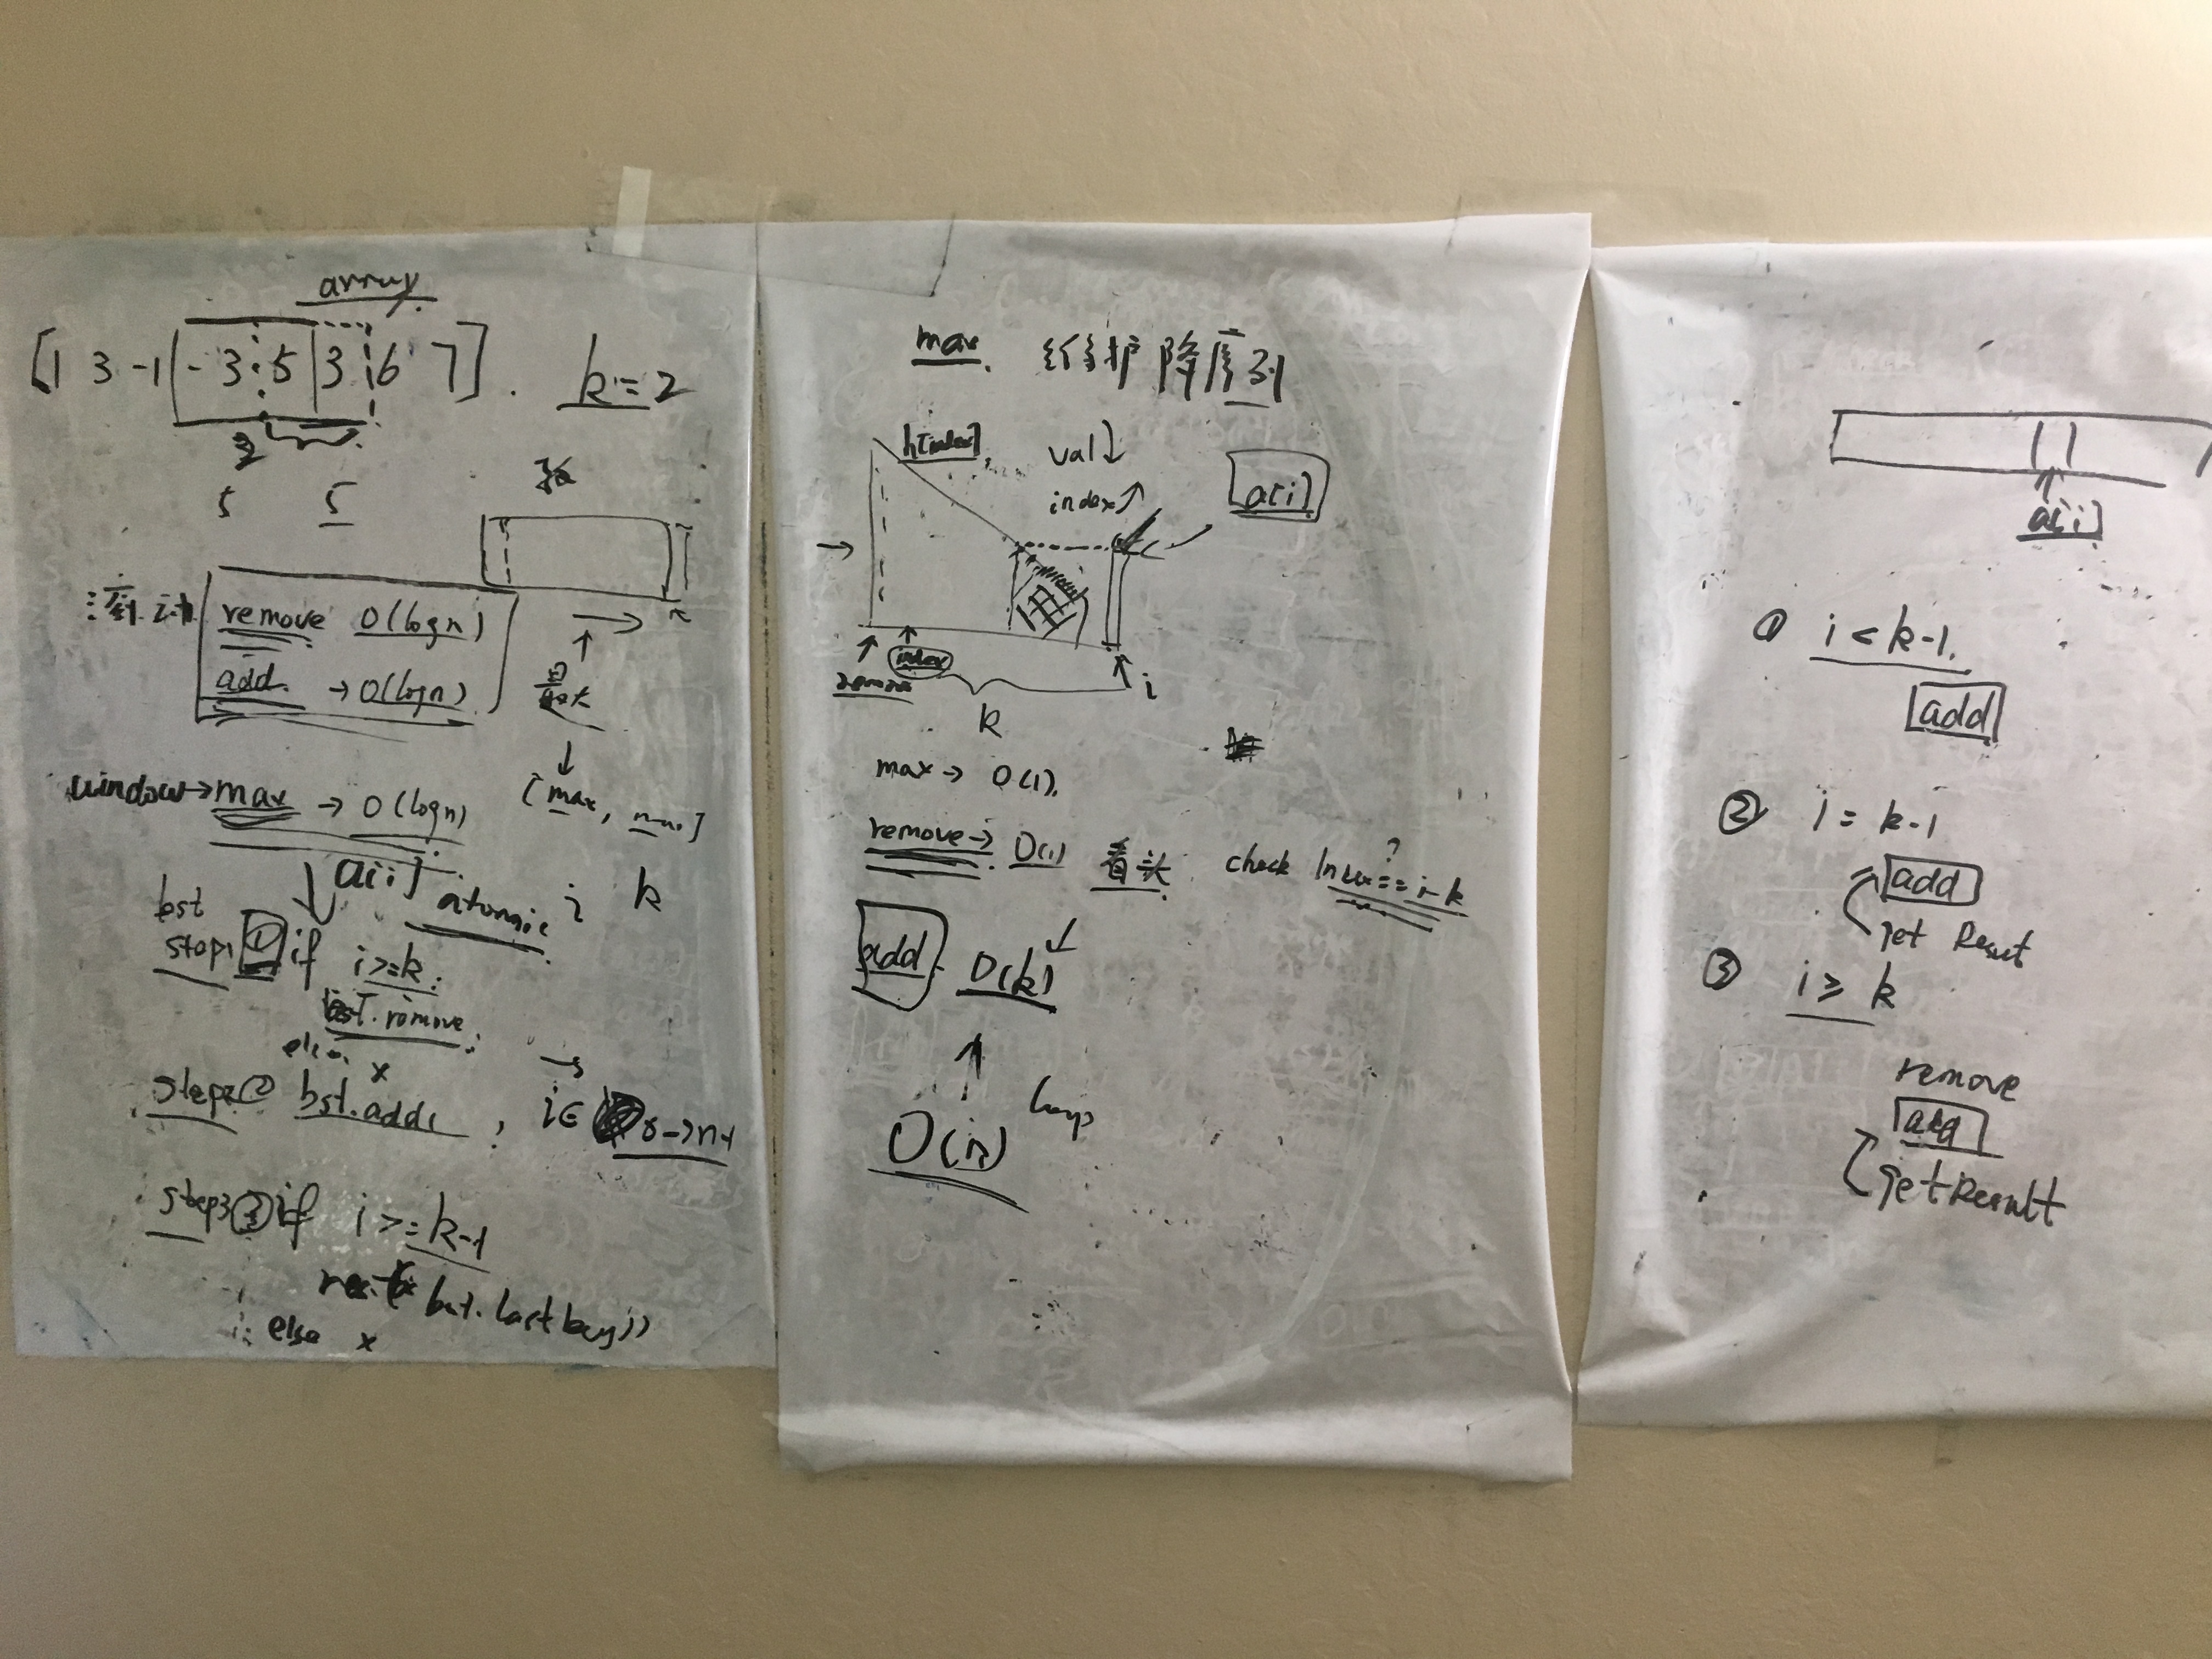 array
[1 3 -1 -3 5 3 6 7]. k=2
2
5 5
remove O(logn)
add. → O(logn)
window→max → O(logn)
[max, ]
a[i] atomic i k
bst
step1 ① if i>=k:
bst.remove
else x
step2 ② bst.add, i∈ 0→n-1
step3 ③ if i>=k-1
else x
max. 维护降序列
h[index]. val↓
index↗
a[i]
index
remove
i
k
max → O(1).
remove → O(1) 看头 check index==i-k ?
add. O(k)
O(n) loop
a[i]
① i < k-1.
add
② i = k-1
add
get Result
③ i ≥ k
remove
add
getResult